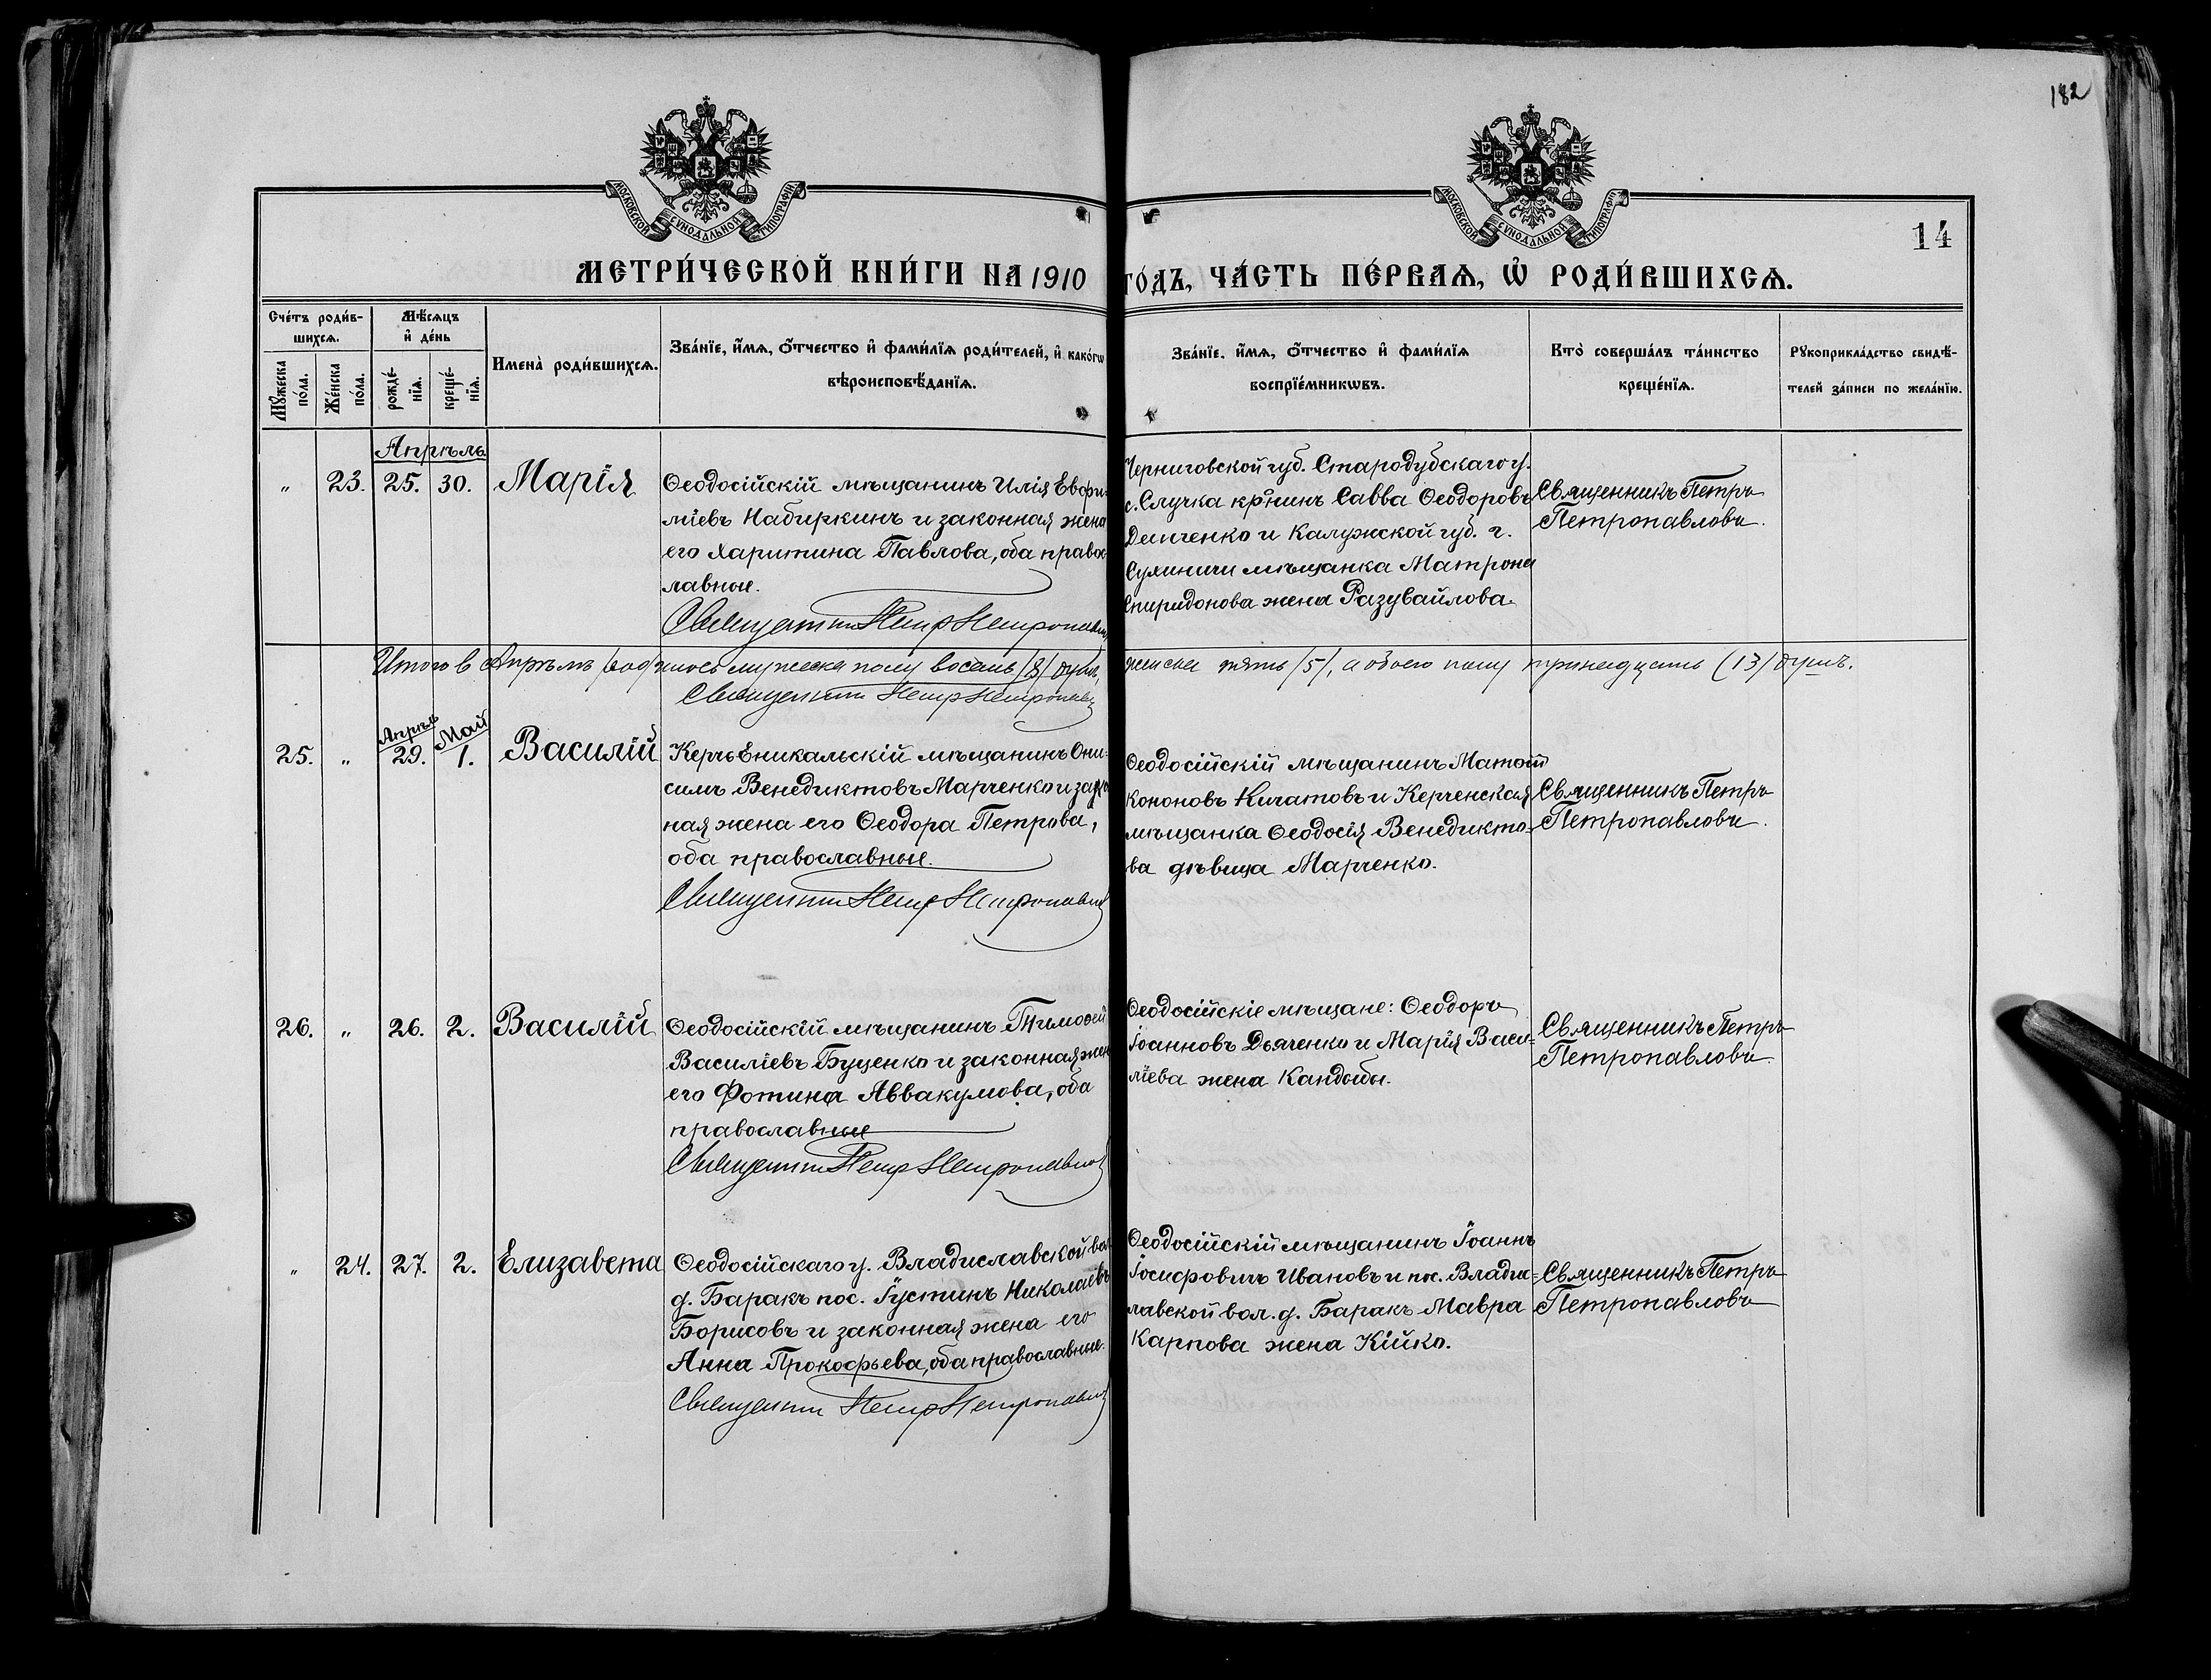 182
МОСКОВСКОЙ СУНОДАЛЬНОЙ ТИПОГРАФІИ
МОСКОВСКОЙ СУНОДАЛЬНОЙ ТИПОГРАФІИ
14
МЕТРИ́ЧЕСКОЙ КНИ́ГИ НА 1910 ГО́ДЪ, ЧА́СТЬ ПЕ́РВАѦ, Ѡ҆ РОДИ́ВШИХСѦ.
Сче́тъ роди́в-
шихсѧ.
Мꙋ́жеска
по́ла.
Же́нска
по́ла.
Мѣ́сѧцъ
и҆ де́нь
рожде́-
нїѧ.
креще́-
нїѧ.
Имена̀ роди́вшихсѧ.
Зва́нїе, и҆́мѧ, ѻ҆́тчество и҆ фами́лїѧ роди́телей, и҆ како́гѡ
вѣроисповѣ́данїѧ.
Зва́нїе, и҆́мѧ, ѻ҆́тчество и҆ фами́лїѧ
воспрїе́мникѡвъ.
Кто̀ соверша́лъ та́инство
креще́нїѧ.
Рꙋкоприкла́дство свидѣ́-
телей за́писи по жела́нїю.
Апрѣль
„ 23. 25. 30. Марія
Ѳеодосійскій мѣщанинъ Илія Евфи-
міевъ Набиркинъ и законная жена
его Харитина Павлова, оба правос-
лавные.
Священникъ Петръ Петропавловъ
Черниговской губ. Стародубскаго у.
с. Случка кр҃нинъ Савва Ѳеодоровъ
и Калужской губ. г.
Сухиничи мѣщанка Матрона
Спиридонова жена Разувайлова.
Священникъ Петръ
Петропавловъ.
Итого в Апрѣлѣ родилось мужеска полу восемь /8/ душъ, женска пять /5/, а обоего полу тринадцать (13) душъ.
Священникъ Петръ Петропавловъ
Апрѣль Май
25. „ 29. 1. Василій
КерчьЕникальскій мѣщанинъ Они-
симъ Венедиктовъ Марченко и закон
ная жена его Ѳеодора Петрова,
оба православные.
Священникъ Петръ Петропавловъ
Ѳеодосійскій мѣщанинъ Матѳій
Кононовъ Кичатовъ и Керченская
мѣщанка Ѳеодосія Венедикто-
ва дѣвица Марченко.
Священникъ Петръ
Петропавловъ.
26. „ 26. 2. Василій
Ѳеодосійскій мѣщанинъ Тимоѳей
Василіевъ Буценко и законная жена
его Фотина Аввакумова, оба
православные
Священникъ Петръ Петропавловъ
Ѳеодосійскіе мѣщане: Ѳеодоръ
Іоанновъ Дьяченко и Марія Васи-
ліева жена Кандыбы.
Священникъ Петръ
Петропавловъ
„ 24. 27. 2. Елизавета
Ѳеодосійскаго у. Владиславской вол.
д. Баракъ пос. Іустинъ Николаевъ
Борисовъ и законная жена его
Анна Прокофьева, оба православные.
Священникъ Петръ Петропавловъ
Ѳеодосійскій мѣщанинъ Іоаннъ
Іосифовичъ Ивановъ и пос. Владис-
лавской вол. д. Баракъ Мавра
Карпова жена Кійко.
Священникъ Петръ
Петропавловъ